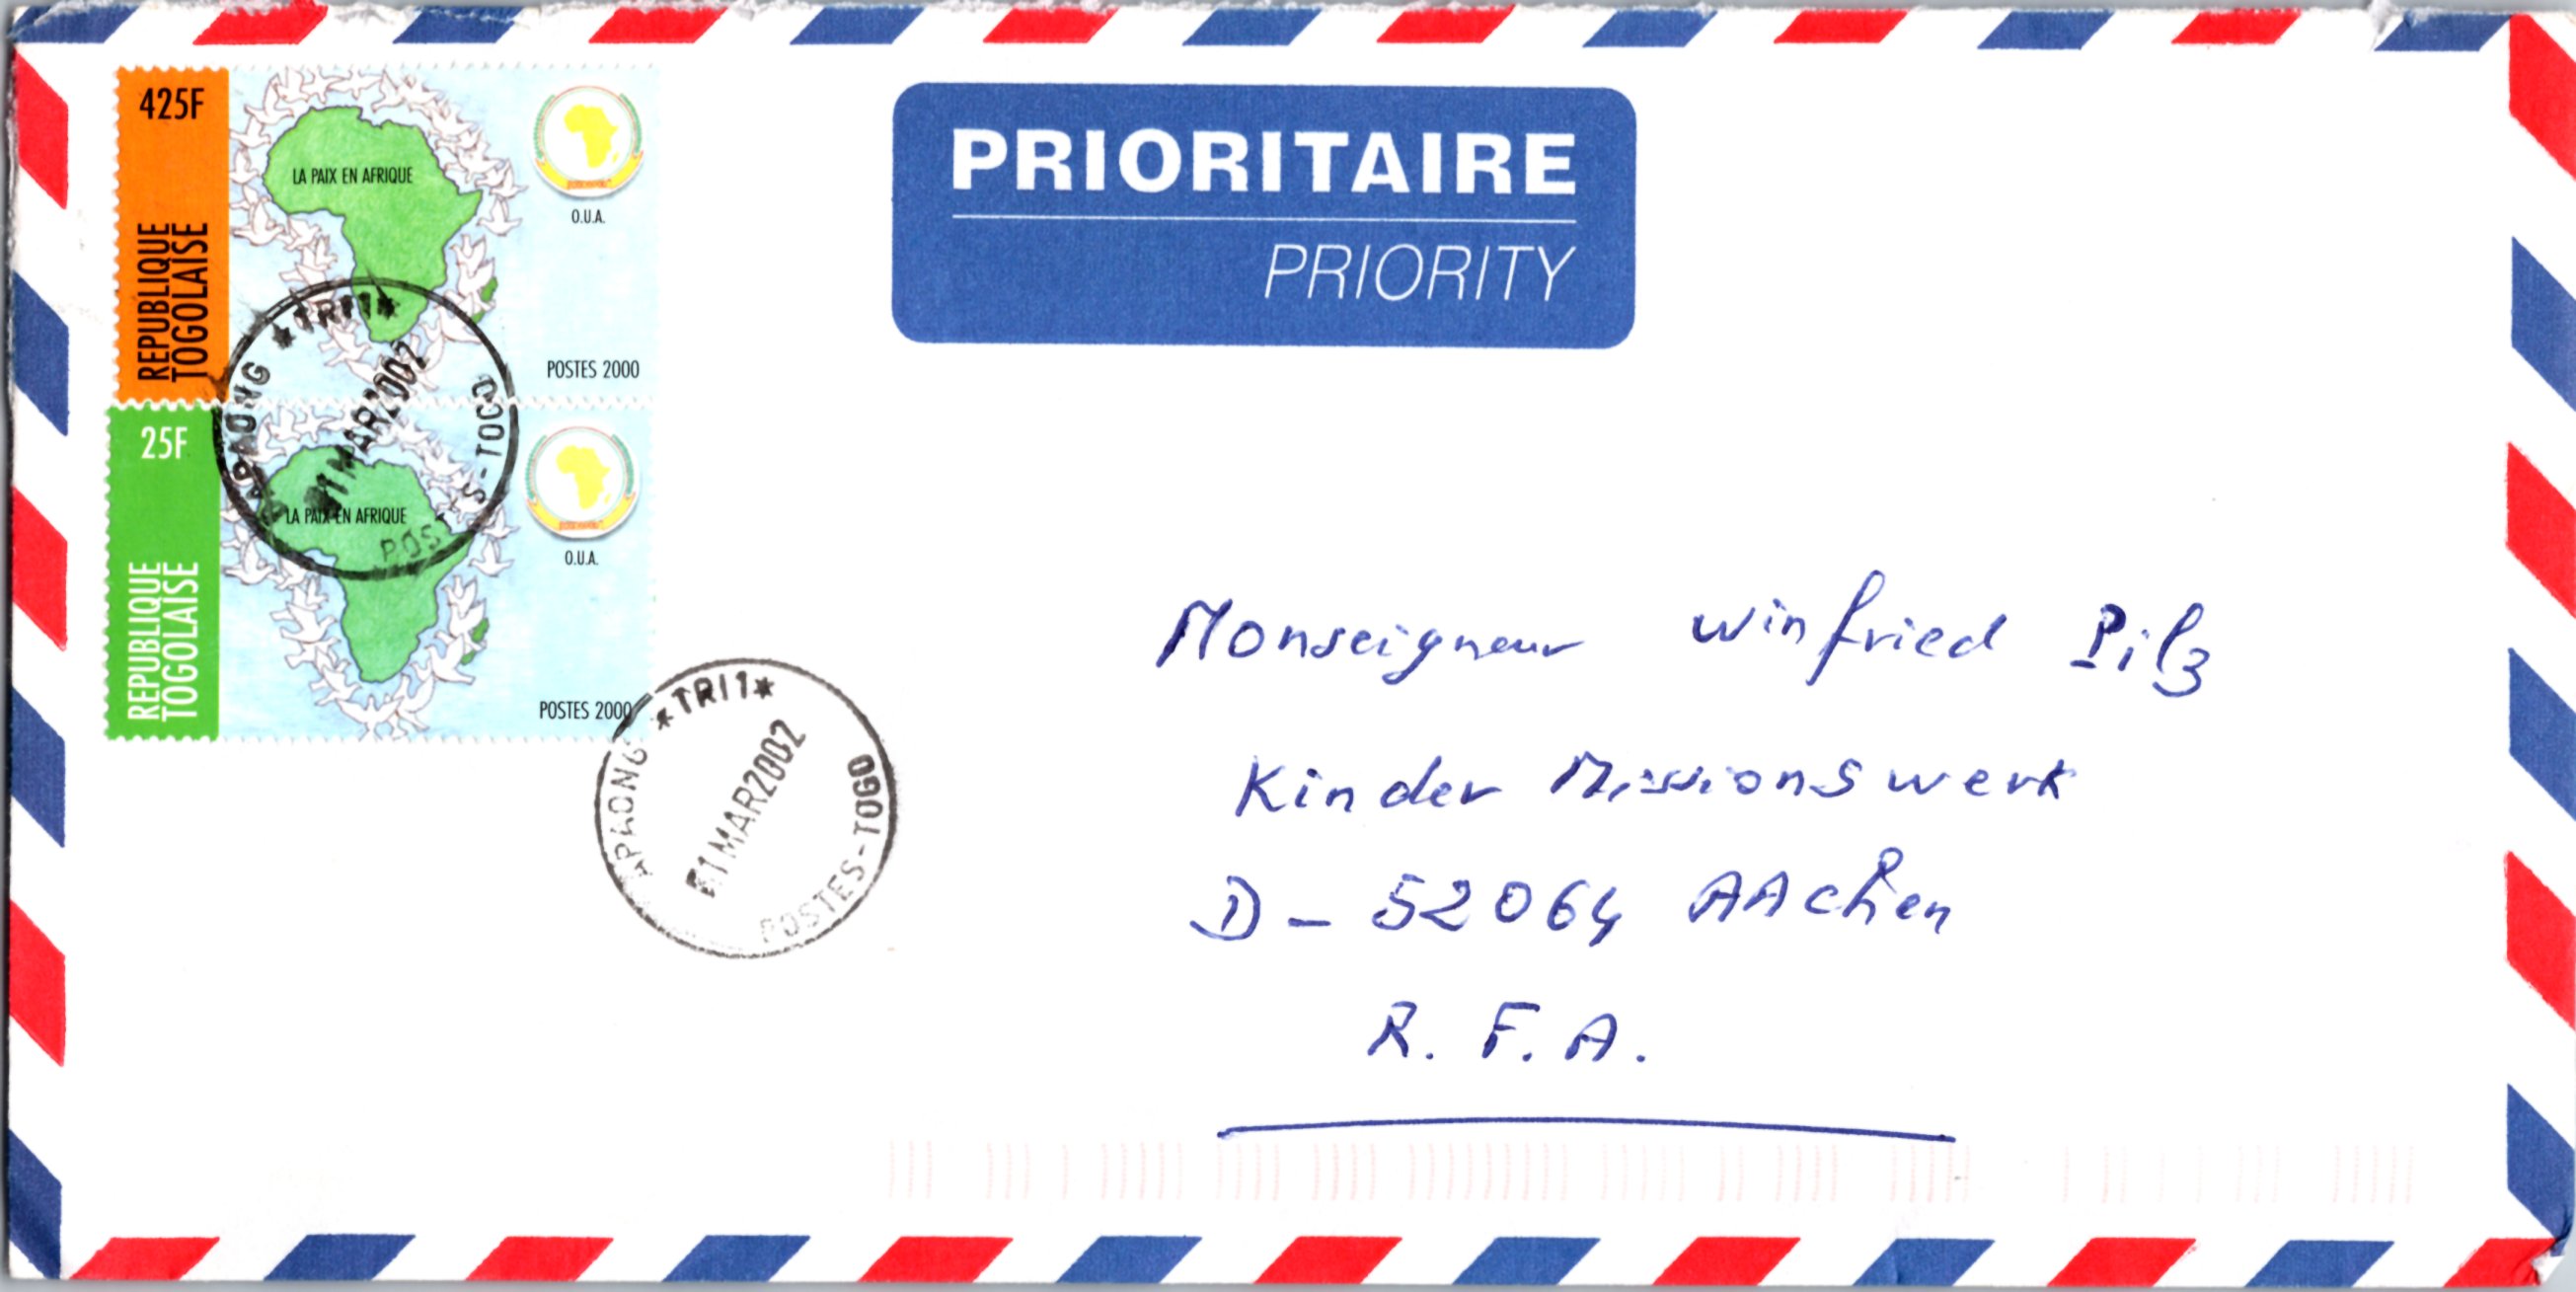 425F
REPUBLIQUE
TOGOLAISE
LA PAIX EN AFRIQUE
O.U.A.
POSTES 2000
25F
REPUBLIQUE
TOGOLAISE
LA PAIX EN AFRIQUE
O.U.A.
POSTES 2000
*TRI1*
MAR2002
*TRI1*
1MAR2002
POSTES-TOGO
PRIORITAIRE
PRIORITY
Monseigneur Winfried Pilz
Kinder Missionswerk
D-52064 AAchen
R.F.A.